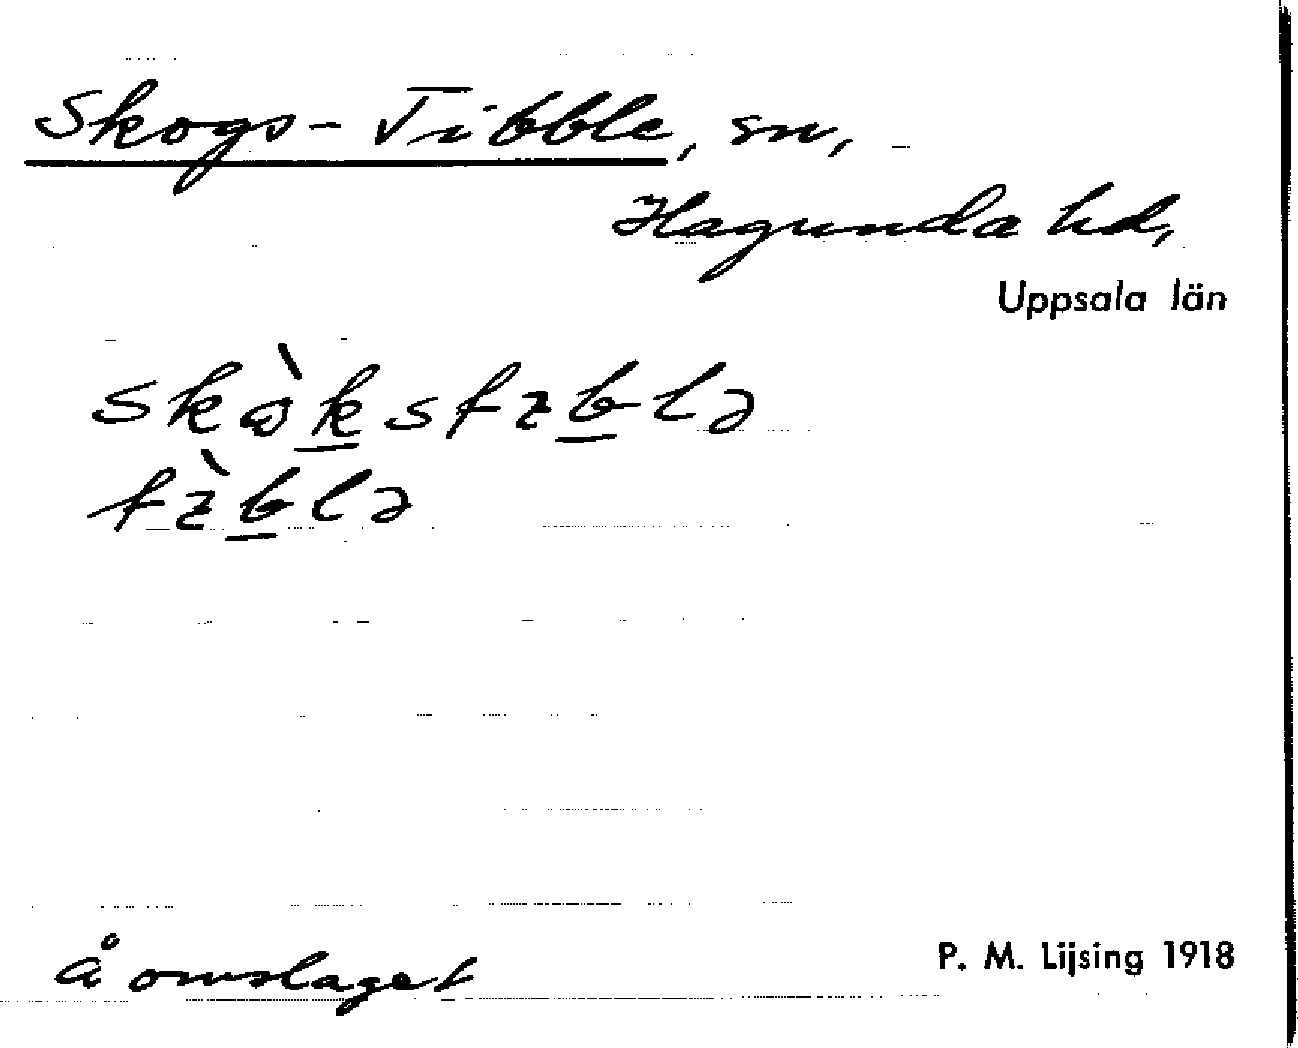 Skogs-Tibble, sn,
Hagunda hd,
Uppsala län
skòkstɪblə
tɪ̀blə
Å omslaget
P. M. Lijsing 1918